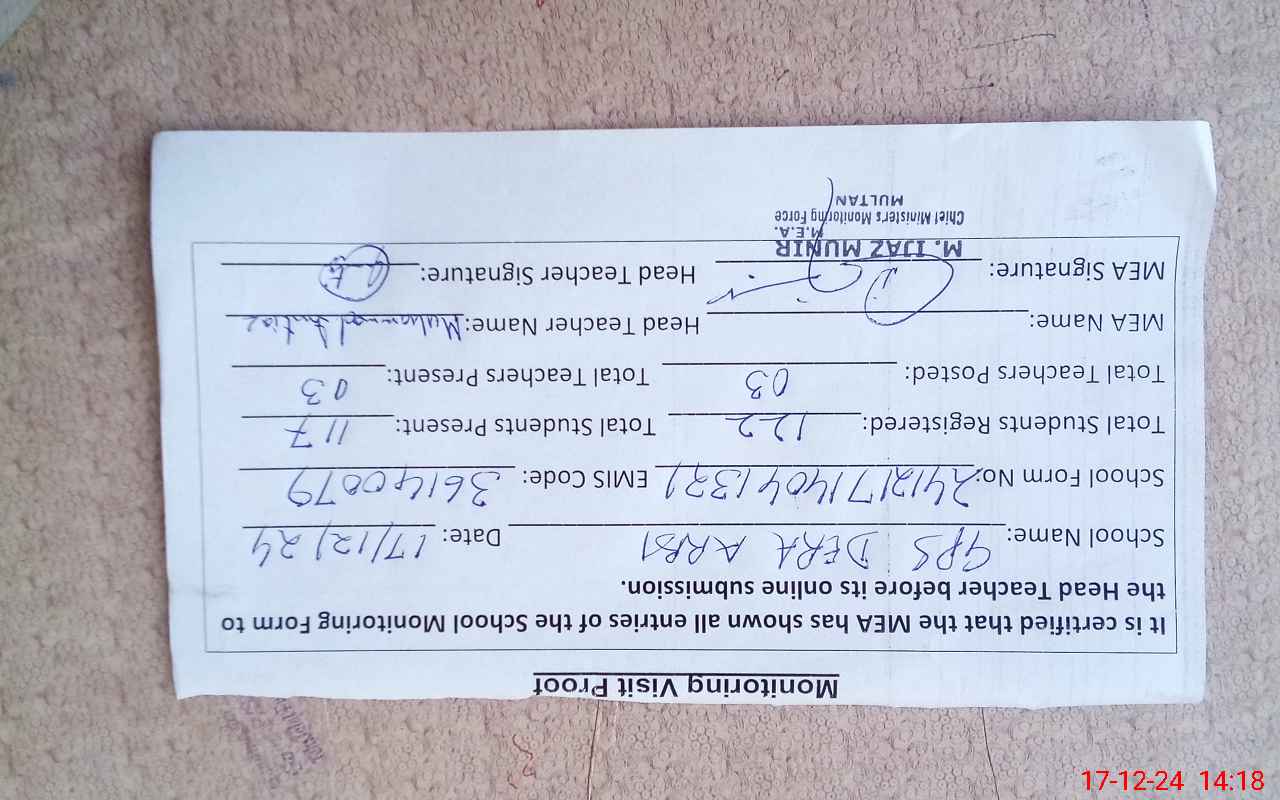 Monitoring Visit Proof
It is certified that the MEA has shown all entries of the School Monitoring Form to
the Head Teacher before its online submission.
School Name: GPS DERA ARBI Date: 17/12/24
School Form No: 24121714041321 EMIS Code: 36140079
Total Students Registered: 122 Total Students Present: 117
Total Teachers Posted: 03 Total Teachers Present: 03
MEA Name: Head Teacher Name: Muhammad Imtiaz
MEA Signature: Head Teacher Signature:
M. IJAZ MUNIR
M.E.A.
Chief Minister's Monitoring Force
MULTAN
17-12-24 14:18